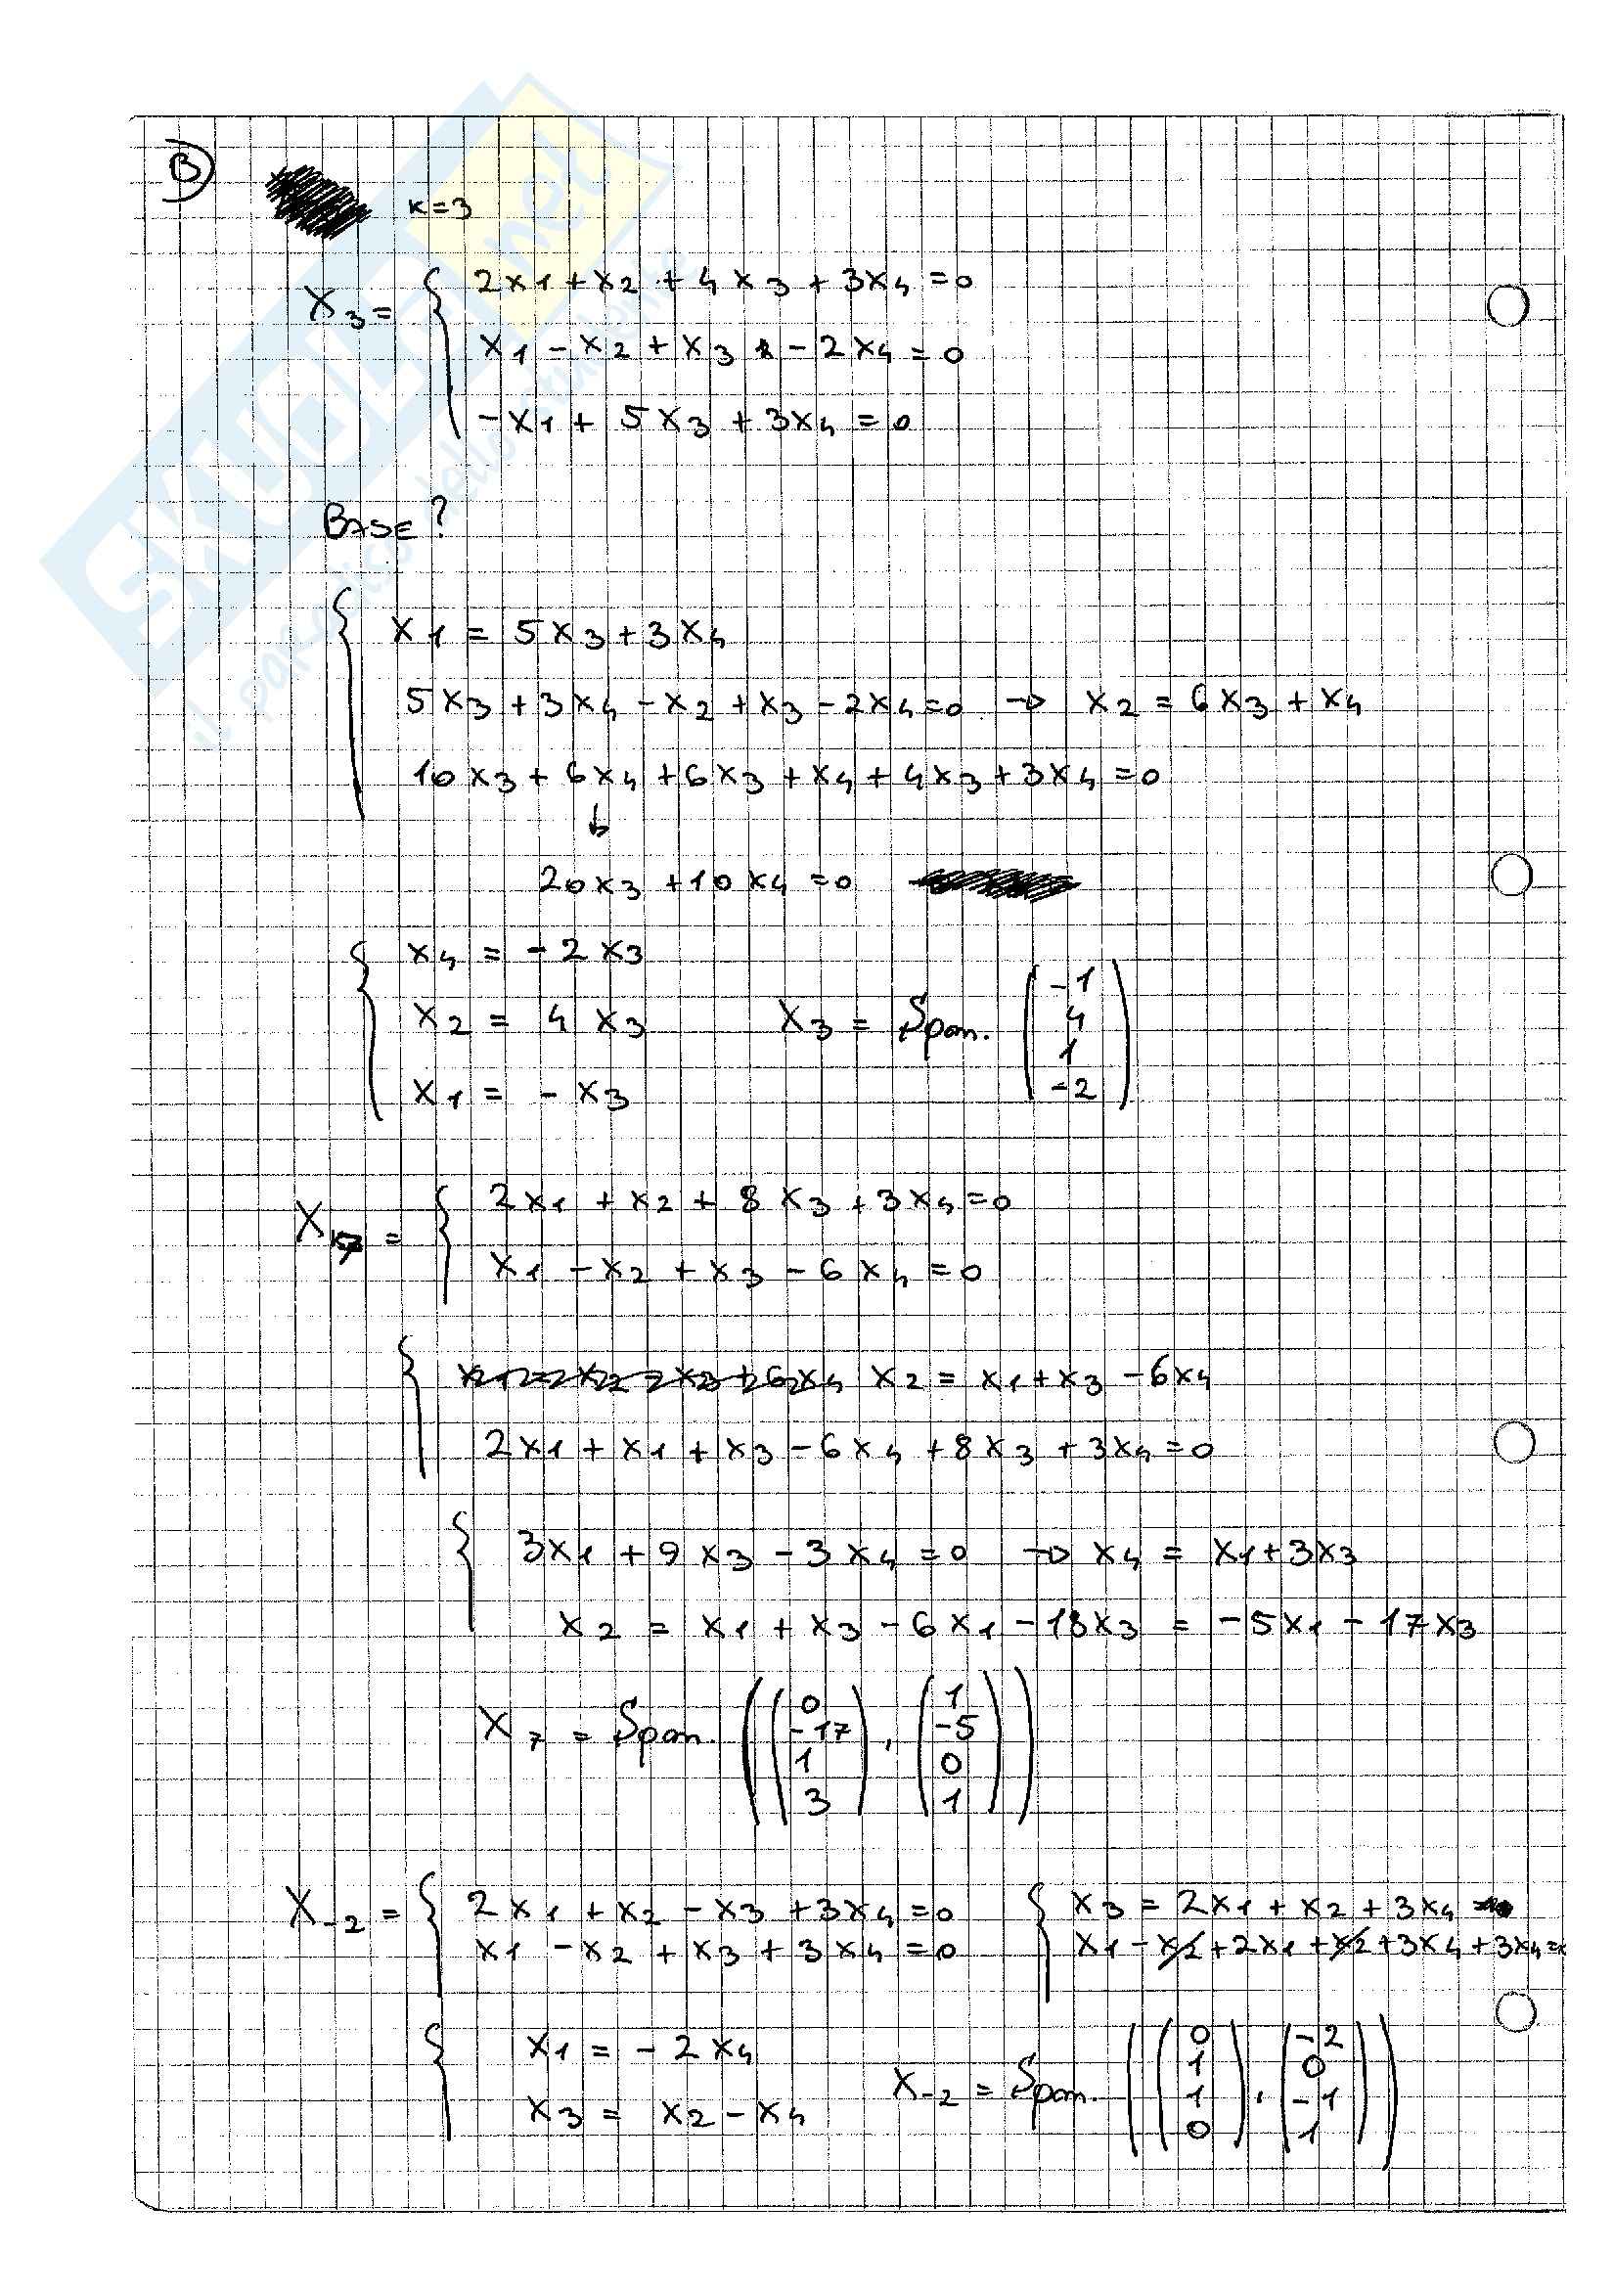 B)
K=3
X3 = { 2x1 + x2 + 4x3 + 3x4 = 0
x1 - x2 + x3 - 2x4 = 0
-x1 + 5x3 + 3x4 = 0
BASE?
{ x1 = 5x3 + 3x4
5x3 + 3x4 - x2 + x3 - 2x4 = 0 → x2 = 6x3 + x4
10x3 + 6x4 + 6x3 + x4 + 4x3 + 3x4 = 0
↓
20x3 + 10x4 = 0
{ x4 = -2x3
x2 = 4x3 X3 = Span (-1 4 1 -2)
x1 = -x3
X7 = { 2x1 + x2 + 8x3 + 3x4 = 0
x1 - x2 + x3 - 6x4 = 0
{ x2 = x1 + x3 - 6x4
2x1 + x1 + x3 - 6x4 + 8x3 + 3x4 = 0
{ 3x1 + 9x3 - 3x4 = 0 → x4 = x1 + 3x3
x2 = x1 + x3 - 6x1 - 18x3 = -5x1 - 17x3
X7 = Span. ((0 -17 1 3), (1 -5 0 1))
X-2 = { 2x1 + x2 - x3 + 3x4 = 0 { x3 = 2x1 + x2 + 3x4
x1 - x2 + x3 + 3x4 = 0 x1 - x2 + 2x1 + x2 + 3x4 + 3x4 = 0
{ x1 = -2x4
x3 = x2 - x4 X-2 = Span. ((0 1 1 0), (-2 0 -1 1))
SKUOLA.net